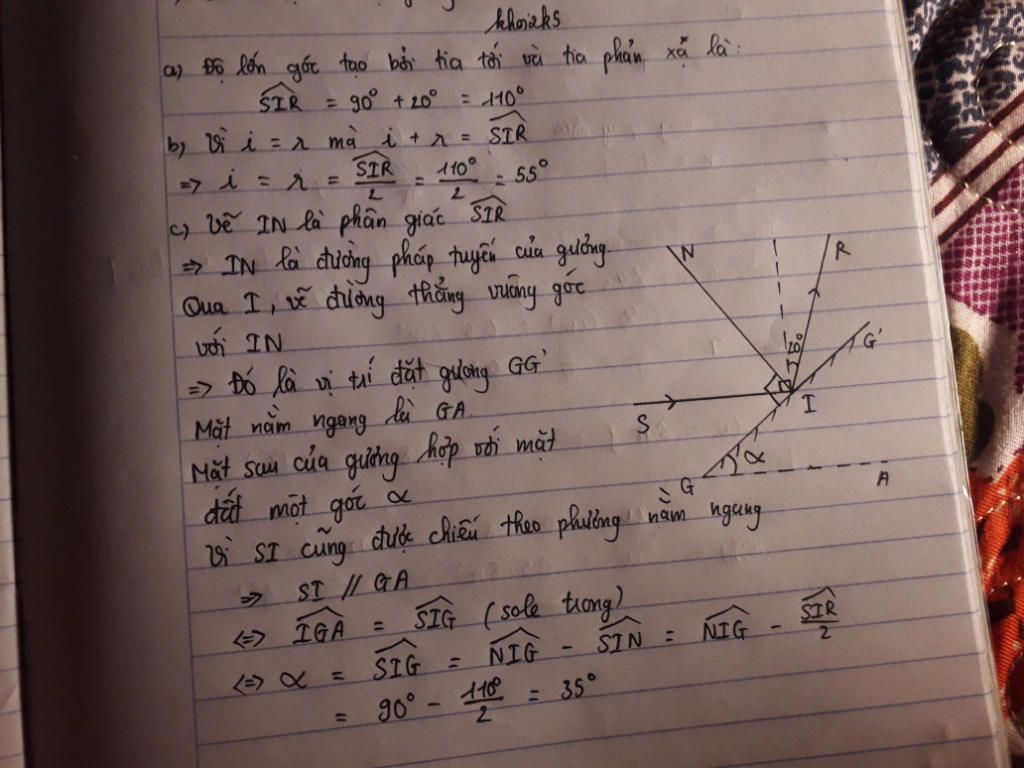 khoi2k5
a) Độ lớn góc tạo bởi tia tới và tia phản xạ là:
SIR = 90° + 20° = 110°
b) Vì i = r mà i + r = SIR
=> i = r = SIR/2 = 110°/2 = 55°
c) Vẽ IN là phân giác SIR
=> IN là đường pháp tuyến của gương
Qua I, vẽ đường thẳng vuông góc
với IN
=> Đó là vị trí đặt gương GG'
Mặt nằm ngang là GA
Mặt sau của gương hợp với mặt
đất một góc α
Vì SI cũng được chiếu theo phương nằm ngang
=> SI // GA
<=> IGA = SIG (sole trong)
<=> α = SIG = NIG - SIN = NIG - SIR/2
= 90° - 110°/2 = 35°
N
R
20°
G'
S
I
α
G
A